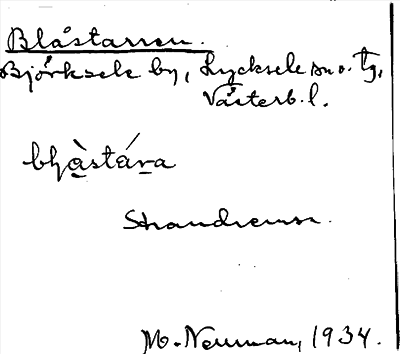 Blåstarren.
Björksele by, Lycksele sn o. tg,
Västerb. l.
bḷà̠stára̠
Strandremsa.
M. Neuman, 1934.